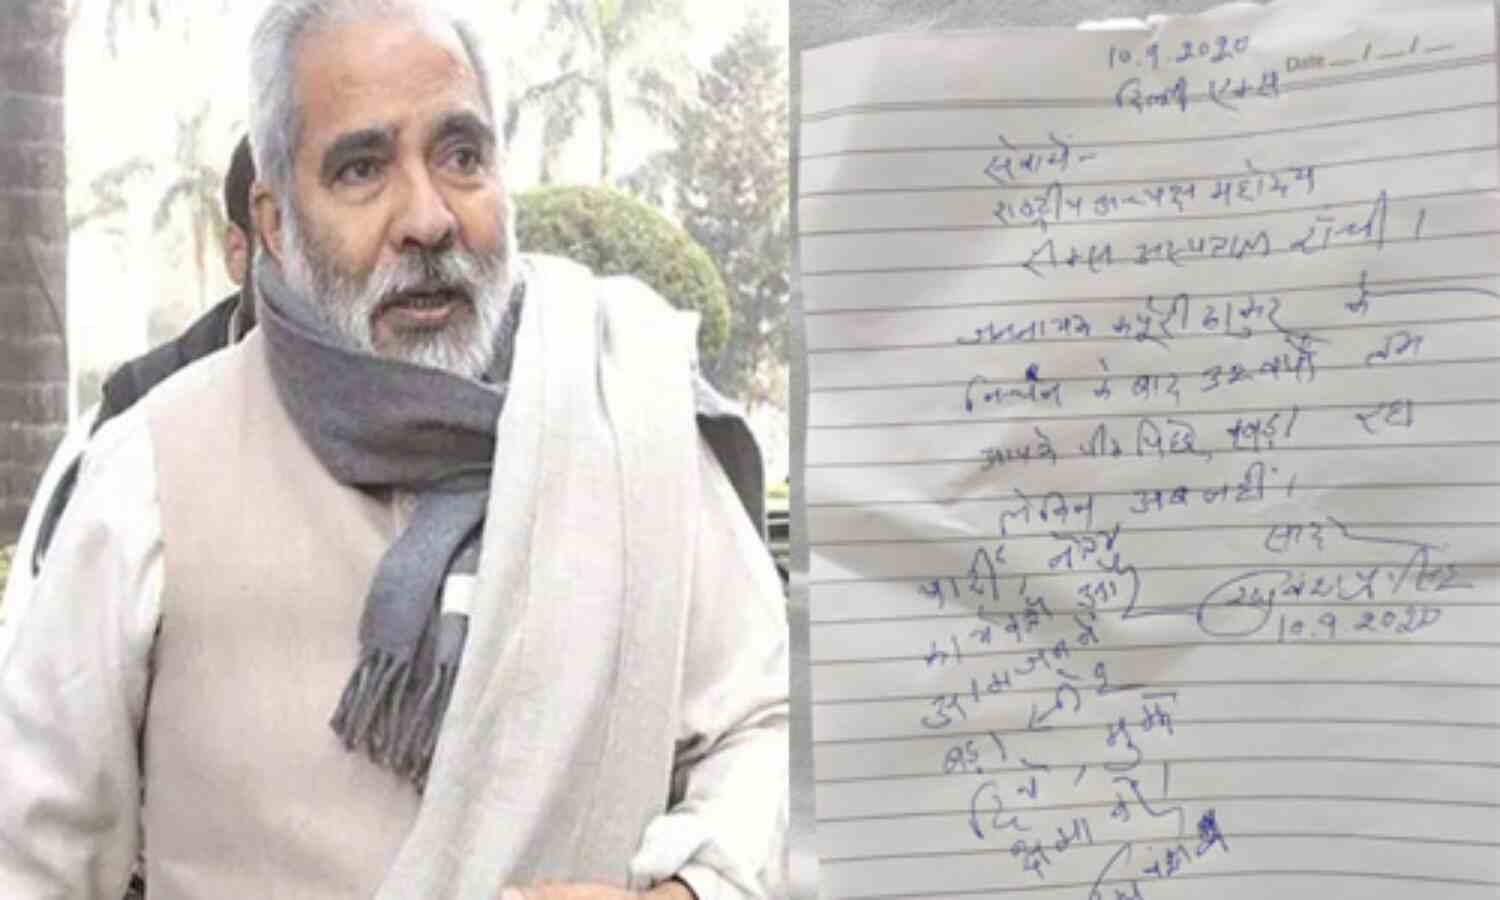 10.9.2020
Date __/__/__
दिल्ली एम्स
सेवामें-
राष्ट्रीय अध्यक्ष महोदय
रिम्स अस्पताल रांची।
जननायक कर्पूरी ठाकुर के
निधन के बाद 32 वर्षों तक
आपके पीठ पिछे खड़ा रहा
लेकिन अब नहीं।
पार्टी, नेता,
कार्यकर्ता और
आमजन ने
बड़ा स्नेह
दिया, मुझे
क्षमा करें।
सादर
रघुवंश प्र. सिंह
10.9.2020